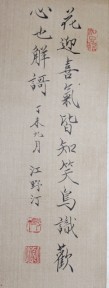 花迎喜氣皆知笑鳥識歡
心也解謌 丁未九月 江野汀